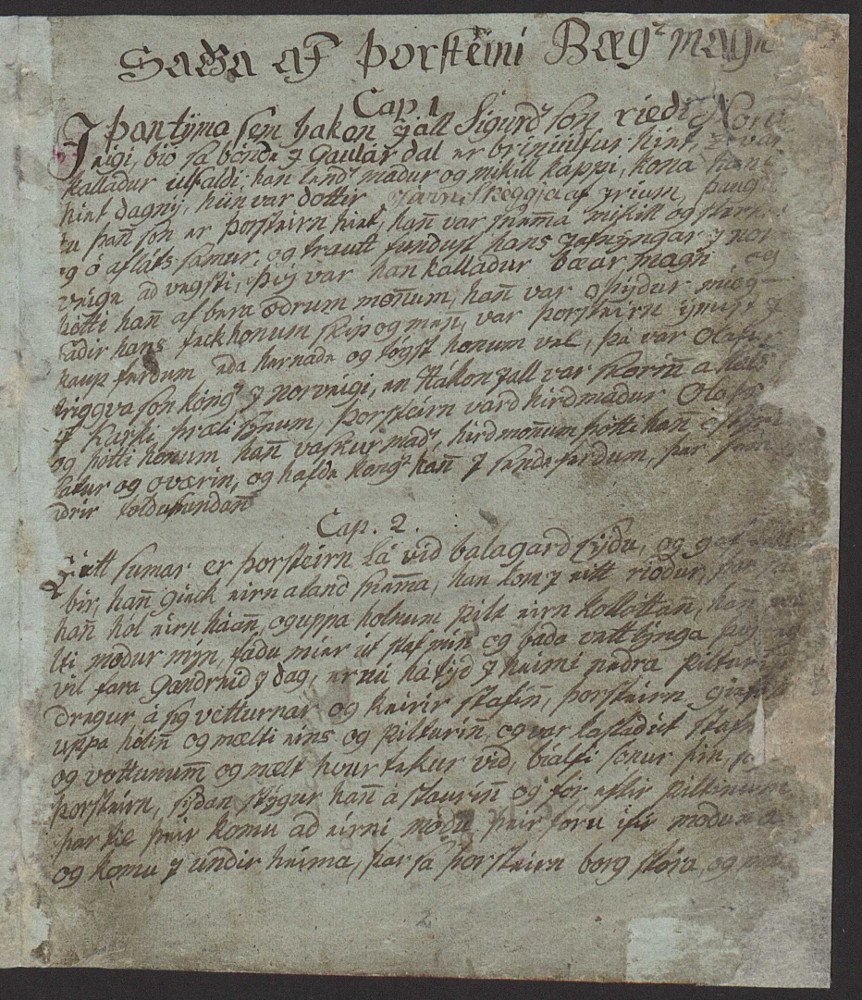 Saga af Þorsteini Bæar magn
Cap 1
J þan tyma sem Hakon Jall Sigurdsson riedi Nor
veigi, bió sá bónde j Gaulárdal er brinúlfur hiet, var
kalladur ulfaldi, han lendr madur og mikill kappi, kona hans
hiet dagný, hún var dottir Járnskeggja af yrium, þaug
tu þan̄ son er þorsteirn hiet, han̄ var fram̄a mikill og sterk
og ó afláts samur, og trautt fundust hans jafnyngar j nor
veige ad vegsti, því var han̄ kalladur bæar magn
þótti han̄ af bera ödrum mön̄um, han̄ var óþydur
fadir hans feck honum skip og men̄, var þorsteirn ymist j
kaup ferdum eda hernade og tógst honum vel, þá var Olafur
triggvason kóngr j norveigi, en Hákon Jall var skorin̄ a háls
af Karki þræli synum, þorsteirn vard hirdmadur Olafs
og þótti honum han̄ vaskur madr, hirdmön̄um þótti han̄ styri
látur og óværin, og hafde kongr han̄ j sendeferdum, þar sem
adrir töldust undan̄
Cap. 2.
Eitt sumar er þorsteirn lá vid balagardssydu, og gaf
bir, han̄ gieck eirn aland fram̄a, han kom j eitt riódur, þar
han̄ hól eirn háan̄, og uppa holnum pilt eirn kollóttan̄, han̄
lti módur myn, fádu mier út staf min̄ og báda vettlynga því eg
vil fara Gandreid j dag, er nú hátyd j heimi nedra
dregur á sig vetturnar og keirir stafin̄, þorsteirn
uppa hólin̄ og mælti eins og pilturin̄, og var kastad út staf
og vöttunum̄ og mælt hvur tekur vid, biálfi sonur þin,
þorsteirn, sydan stygur han̄ á staurin̄ og fór eftir piltinum
þar til þeir komu ad eirni módu, þeir fóru ifir móduna
og komu j undir heima, þar sá þorsteirn borg stóra, og
2